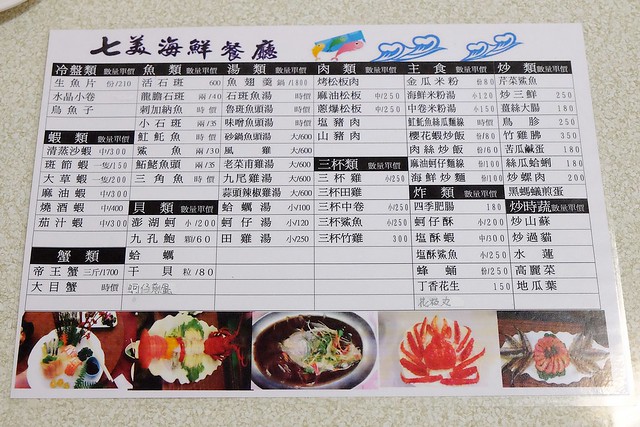 七美海鮮餐廳
冷盤類 數量單價
生魚片 份/210
水晶小卷
烏魚子
蝦類 數量單價
清蒸沙蝦 中/300
斑節蝦 一隻/150
大草蝦 一隻/200
麻油蝦 中/300
燒酒蝦 中/400
茄汁蝦 中/300
蟹類
帝王蟹 三斤/1700
大目蟹 時價
魚類 數量單價
活石斑 600
龍膽石斑 兩/40
刺加納魚 時價
小石斑 時價
魟魠魚 時價
鯊魚 兩/30
鮖鮱魚頭 兩/35
三角魚 時價
貝類 數量單價
澎湖蚵 小/200
九孔鮑 顆/60
蛤蠣
干貝 粒/80
湯類 數量單價
魚翅羹 鍋/1800
石斑魚湯 時價
魯斑魚頭湯 時價
味噌魚頭湯 時價
砂鍋魚頭湯 大/600
風雞 大/600
老菜甫雞湯 大/600
九尾雞湯 大/600
蒜頭辣椒雞湯 大/600
蛤蠣湯 小/100
蚵仔湯 小/120
田雞湯 小/250
肉類 數量單價
烤松板肉
麻油松板 中/250
蔥爆松板 中/250
塩豬肉
山豬肉
三杯類 數量單價
三杯雞 小/250
三杯田雞
三杯中卷 小/250
三杯鯊魚 小/250
三杯竹雞 300
主食 數量單價
金瓜米粉 份80
海鮮米粉湯 小120
中卷米粉湯 小150
魟魠魚絲瓜麵線 時價
櫻花蝦炒飯 份/80
肉絲炒飯 份/60
麻油蚵仔麵線 份/100
海鮮炒麵 份/100
炸類 數量單價
四季肥腸 180
蚵仔酥 小/200
塩酥蝦 中/300
塩酥鯊魚 小/250
蜂蛹 份/250
丁香花生 150
花枝丸
炒類 數量單價
芹菜鯊魚
炒三鮮 250
薑絲大腸 180
鳥胗 250
竹雞胇 350
苦瓜鹹蛋 180
絲瓜蛤蜊 180
炒螺肉 200
黑螞蟻煎蛋
炒時蔬 數量單價
炒山蘇
炒過貓
水蓮
高麗菜
地瓜葉